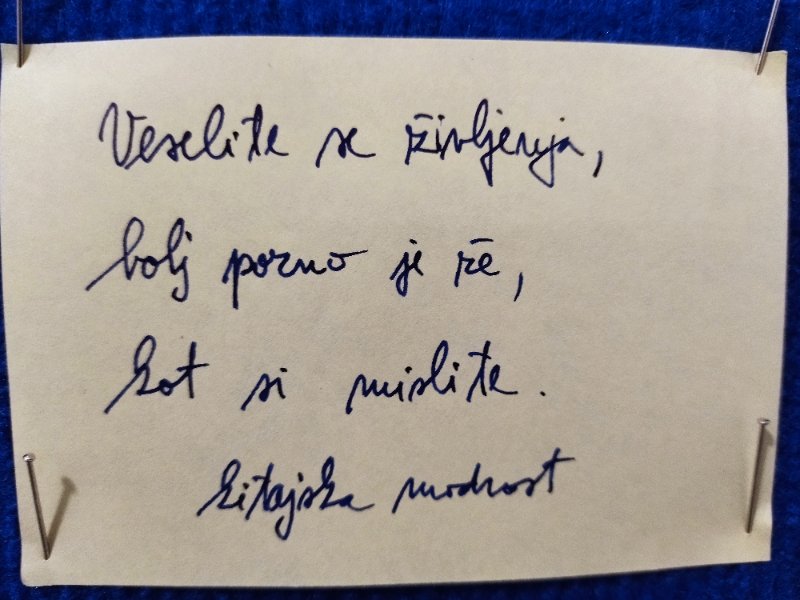 Veselite se življenja,
bolj pozno je že,
kot si mislite.
kitajska modrost